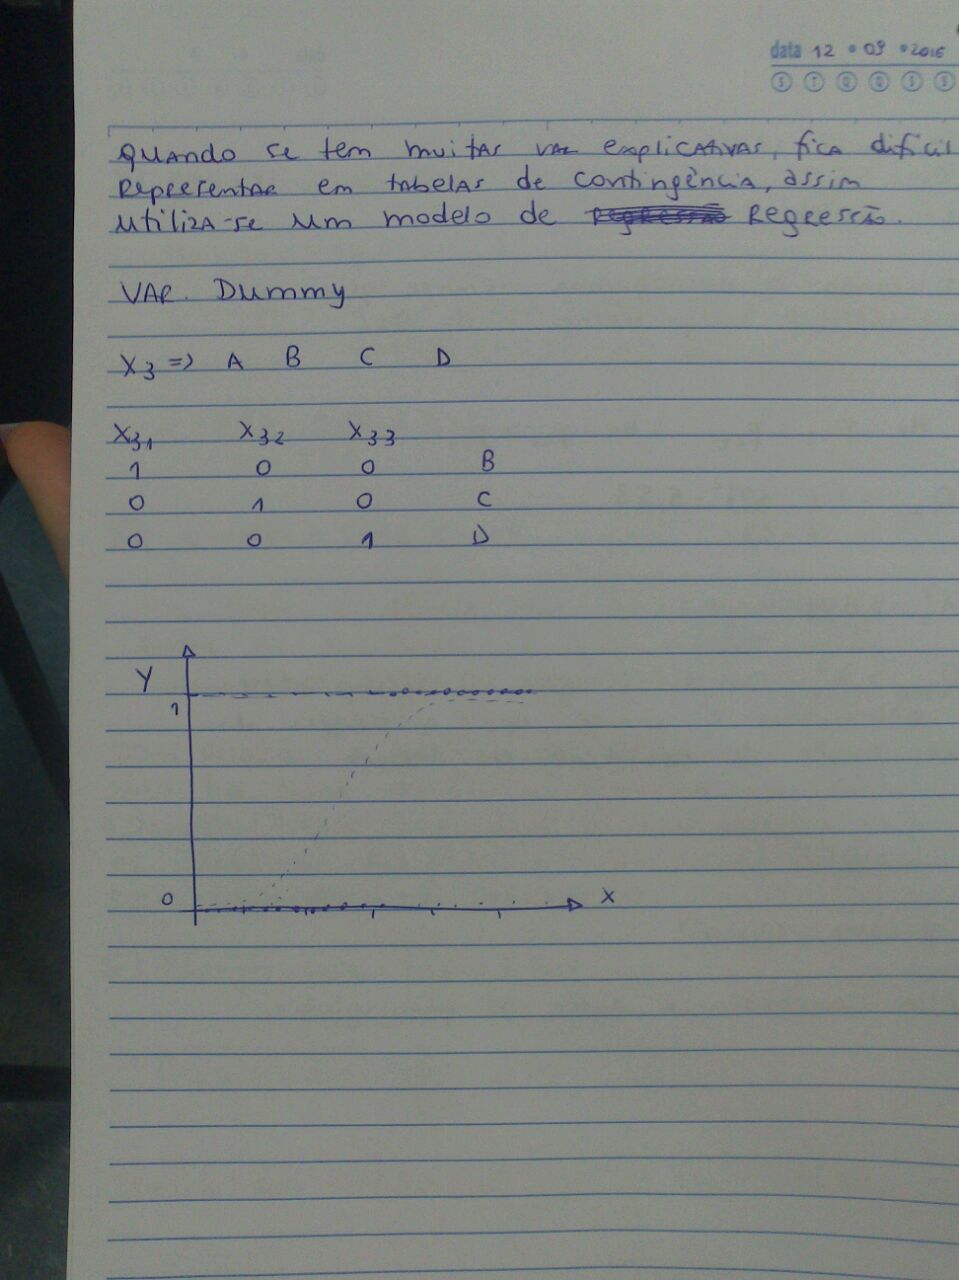 data 12 • 09 • 2016
S T Q Q S S
Quando se tem muitas var explicativas, fica difícil
representar em tabelas de contingência, assim
utiliza-se um modelo de regressão regressão.
VAR. Dummy
X3 => A B C D
X31 X32 X33
1 0 0 B
0 1 0 C
0 0 1 D
Y
1
0
X